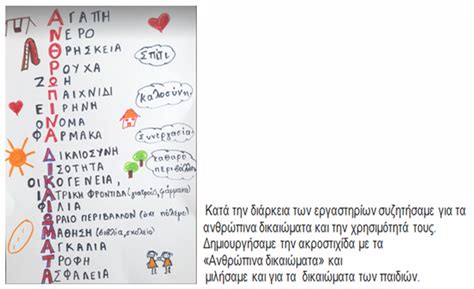 ΑΓΑΠΗ
ΝΕΡΟ
ΘΡΗΣΚΕΙΑ
Σπίτι
ΡΟΥΧΑ
ΖΩΗ
ΠΑΙΧΝΙΔΙ
καλοσύνη
ΕΙΡΗΝΗ
ΟΝΟΜΑ
ΦΑΡΜΑΚΑ
Συνεργασία
ΔΙΚΑΙΟΣΥΝΗ
καθαρό
περιβάλλον
ΙΣΟΤΗΤΑ
ΟΙΚΟΓΕΝΕΙΑ,
ΙΑΤΡΙΚΗ ΦΡΟΝΤΙΔΑ (γιατρούς, φάρμακα)
ΦΙΛΙΑ
ΩΡΑΙΟ ΠΕΡΙΒΑΛΛΟΝ (όχι πόλεμο)
ΜΑΘΗΣΗ (βιβλία, σχολείο)
ΑΓΚΑΛΙΑ
ΤΡΟΦΗ
ΑΣΦΑΛΕΙΑ
Κατά την διάρκεια των εργαστηρίων συζητήσαμε για τα
ανθρώπινα δικαιώματα και την χρησιμότητά τους.
Δημιουργήσαμε την ακροστιχίδα με τα
«Ανθρώπινα δικαιώματα» και
μιλήσαμε και για τα δικαιώματα των παιδιών.